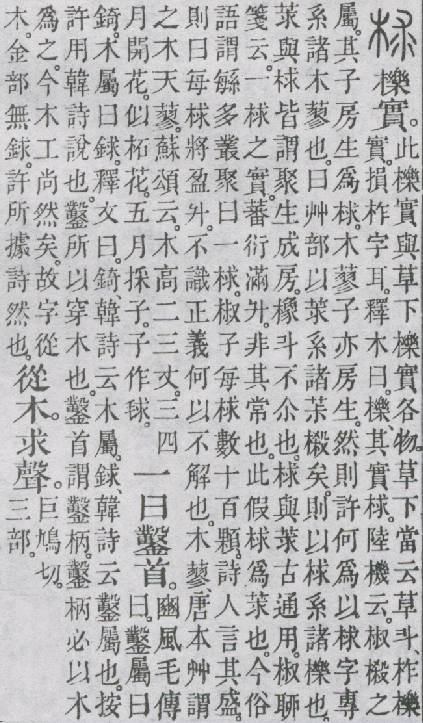 梂 櫟實。
此櫟實與草下櫟實各物。草下當云草斗。柞櫟
實。損柞字耳。釋木曰。櫟、其實梂。陸機云。椒樧之
屬。其子房生爲梂。木蓼子亦房生。然則許何爲以梂字專
系諸木蓼也。曰艸部以莍系諸茮樧矣。則以梂系諸櫟也。
莍與梂皆謂聚生成房。橡斗不尒也。梂與莍古通用。椒聊
箋云。一梂之實。蕃衍滿升。非其常也。此假梂爲莍也。今俗
語謂緐多叢聚曰一梂。椒子每梂數十百顆。詩人言其盛。
則曰每梂將盈升。不識正義何以不解也。木蓼、唐本艸謂
之木天蓼。蘇頌云。木高二三丈。三四
月開花。似柘花。五月採子。子作球。
一曰鑿首。
豳風毛傳
曰。鑿屬曰
錡。木屬曰銶。釋文曰。錡、韓詩云木屬。銶、韓詩云鑿屬也。按
許用韓詩說也。鑿所以穿木也。鑿首謂鑿柄。鑿柄必以木
爲之。今木工尚然矣。故字從
木。金部無銶。許所據詩然也。
從木。求聲。
巨鳩切。
三部。